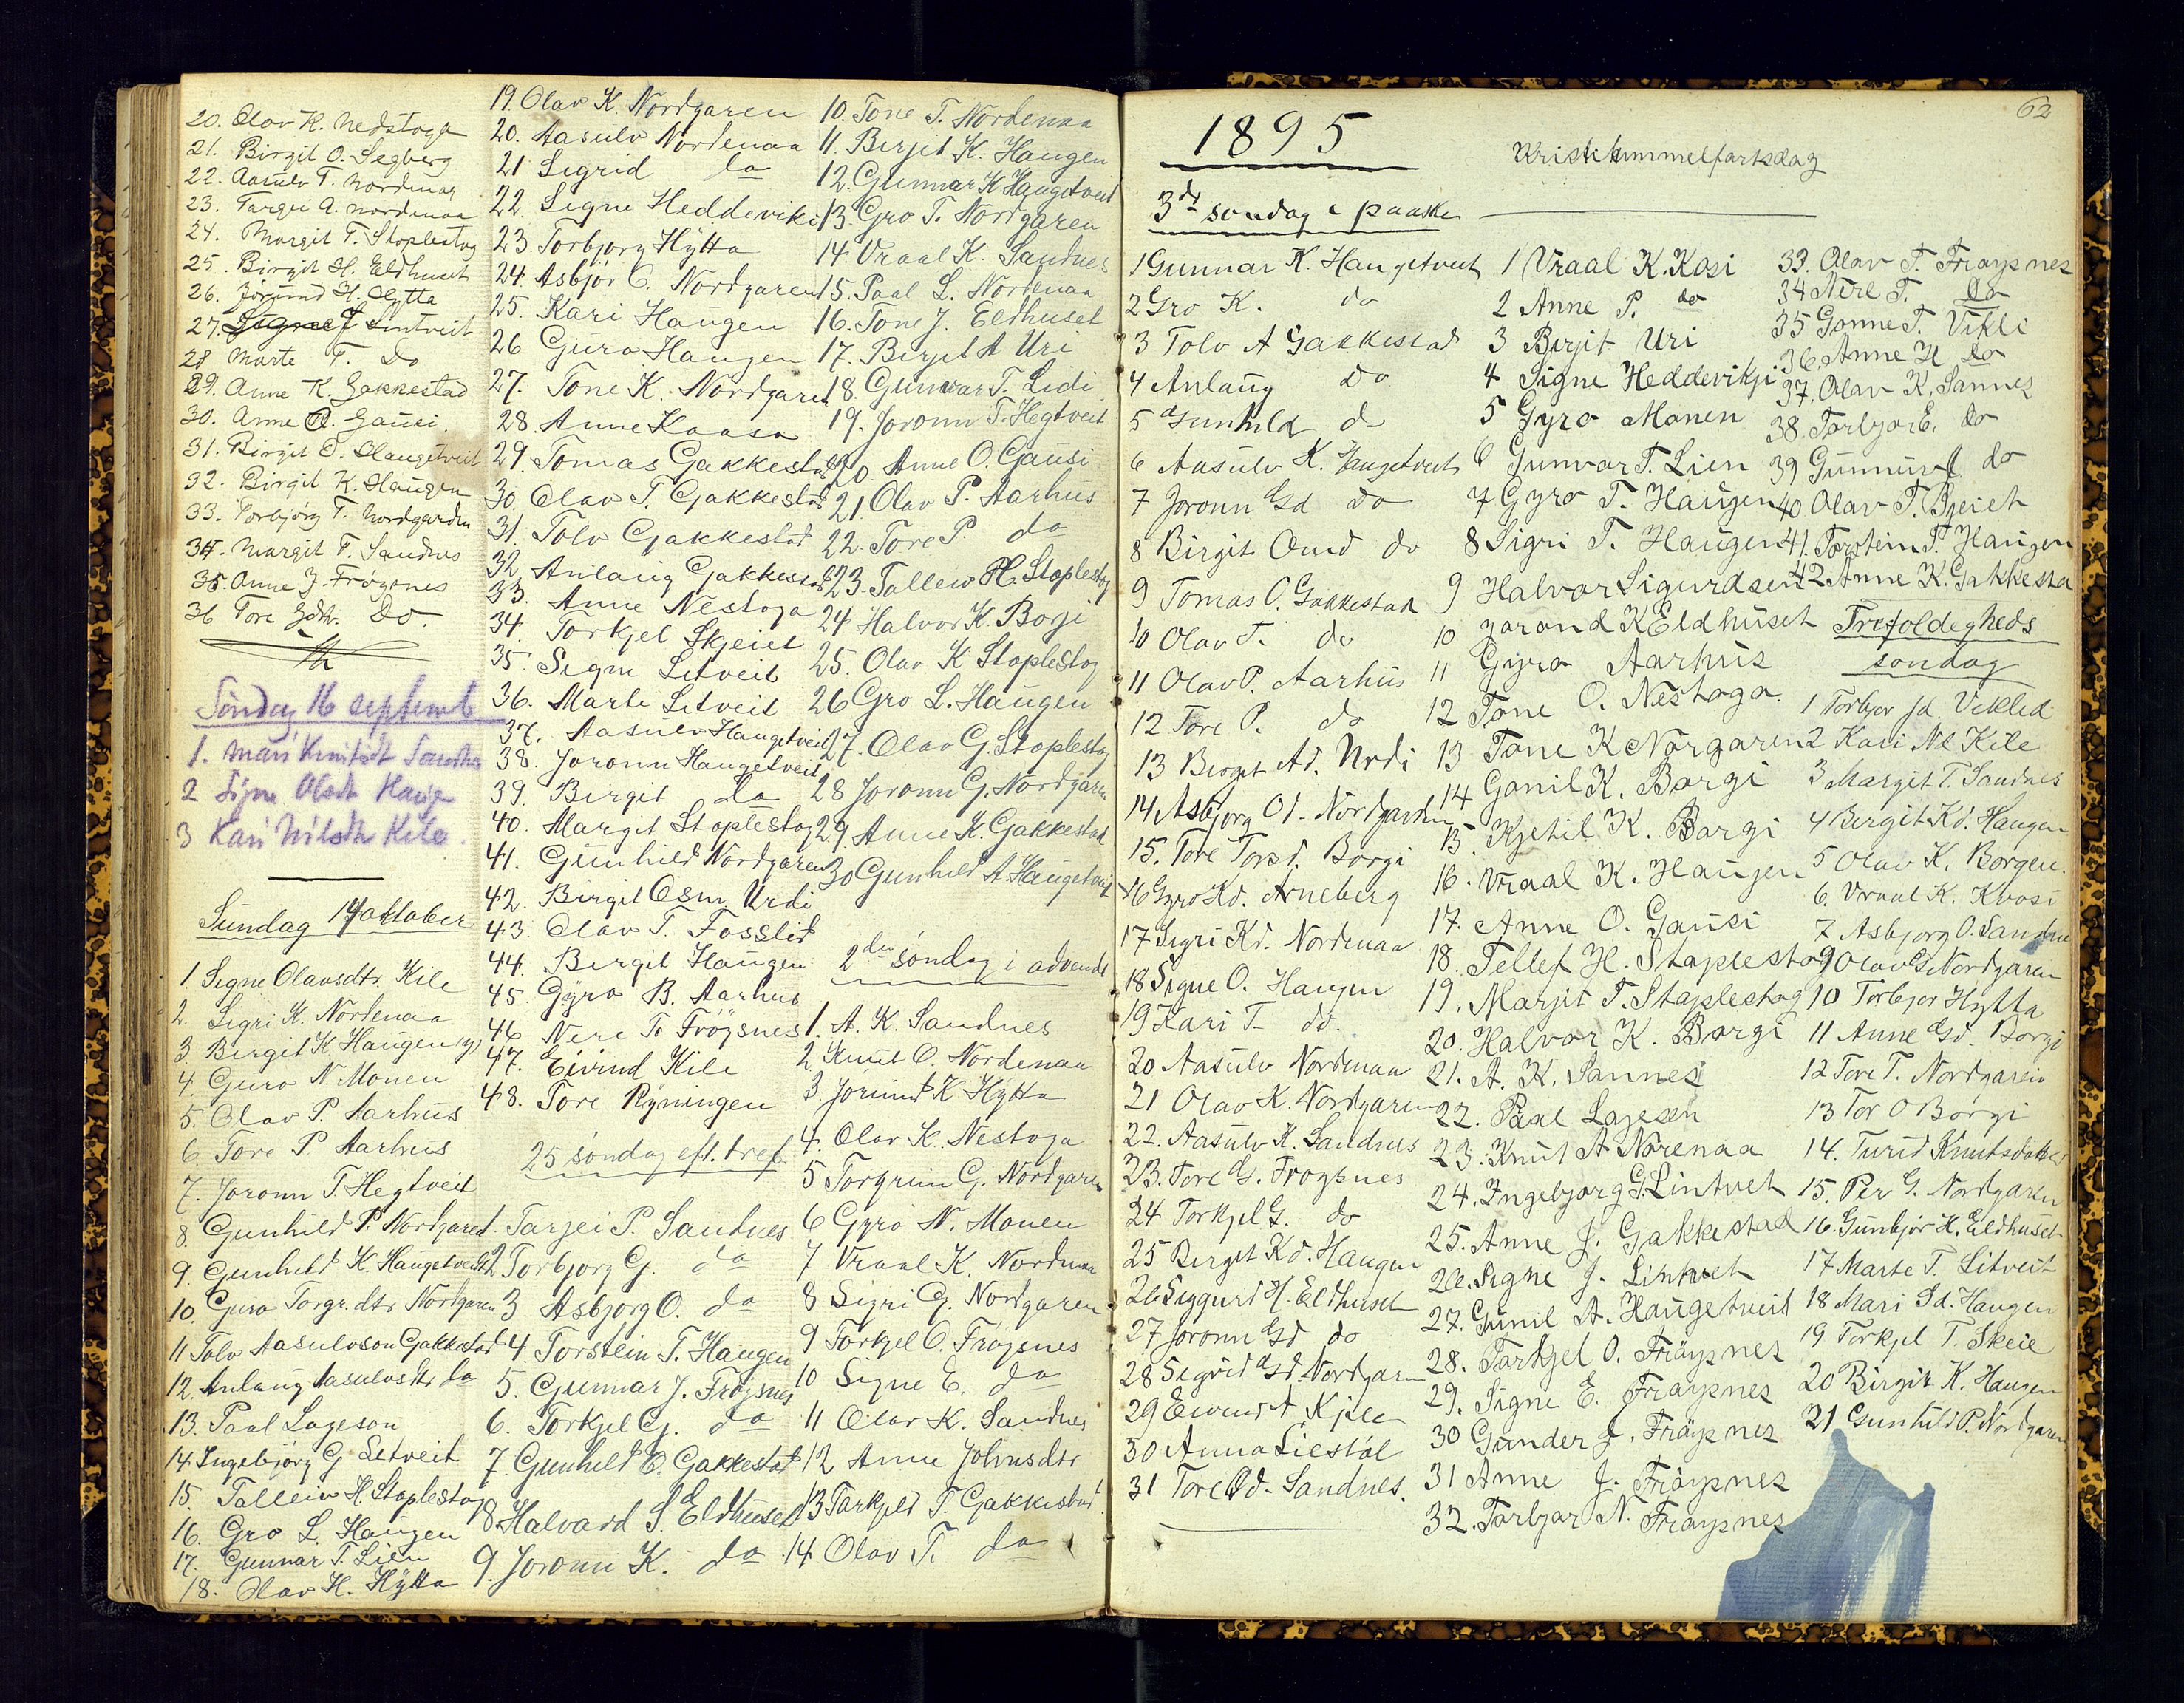 20. Olav K. Nedstoga
21. Birgit O. Segberg
22. Aasulv T. Nordenaa
23. Targei A. Nordenaa
24. Margit T. Stoplestog
25. Birgit H. Eldhuset
26. Jörund H. Hytta
27. Signe J Lintveit
28 Marte T. Do
29. Anne K. Gakkestad
30. Anne O. Gausi.
31. Birgit O. Haugetveit
32. Birgit K. Haugen
33. Torbjörg T. Nordgarden
34. Margit T. Sandnes
35. Anne J. Frögsnes
36 Tore Gdtr. Do.
Söndag 16 septemb
1. Mari Knutsdt Sandnes
2 Signe Olsdt Haugen
3 Kari Nilsdtr Kile.
Sundag 14 oktober
1. Segne Olavsdtr. Kile
2. Segri K. Nordenaa
3. Bergit K Haugen
4. Guro N. Monen
5. Olav P. Aarhus
6. Tore P. Aarhus
7. Joronn T. Hegtveit
8. Gunhild P. Nordgaren
9. Gunhild K. Haugetveit
10. Guro Torgr. dtr Nordgaren
11 Tolv Aasulvson Gakkestad
12. Anlaug Aasulvsdtr do
13. Paal Lageson
14. Ingebjörg G Letveit
15. Talleiv H. Stoplestog
16. Gro L. Haugen
17. Gunnar T. Lien
18. Olav H. Hytta
19. Olav K. Nordgaren
20. Aasulv Nordenaa
21 Sigrid do
22. Segne Heddeviki
23. Torbjorg Hytta
24. Asbjör O. Nordgaren
25. Kari Haugen
26 Guro Haugen
27. Tone K. Nordgaren
28. Anne Kaasa
29. Tomas Gakkestad
30. Olav T. Gakkestad
31. Tolv Gakkestad
32. Anlaug Gakkestad
33. Anne Nestoga
34. Torkjel Skjeiet
35. Segne Letveit
36. Marte Letveit
37. Aasulv Haugetveit
38. Joronn Haugetveit
39. Birgit do
40. Margit Stoplestog
41. Gunhild Nordgaren
42. Birgit Osm. Urdi
43. Olav T. Fosslid
44. Bergit Haugen
45. Gyro B. Aarhus
46 Nere T. Frögsnes
47. Eivind Kile
48. Tore Ryningen
25 söndag eft. tref.
1. Tarjei P. Sandnes
2 Torbjorg G. do
3 Asbjorg O. do
4. Torstein T. Haugen
5. Gunnar J. Frögsnes
6. Torkjel G. do
7. Gunhild O. Gakkestad
8. Halvard S. Eldhuset
9. Joronn K. do
10. Tone T. Nordenaa
11. Berjit K. Haugen
12. Gunnar K Haugetveit
13. Gro T. Nordgaren
14. Vraal K. Sandnes
15. Paal L. Nordenaa
16. Tone J. Eldhuset
17. Berjit A Uri
18. Gunvar T. Lidi
19. Joronn T. Hegtveit
20. Anne O. Gausi
21. Olav P. Aarhus
22. Tore P. do
23. Talleiv H. Stoplestog
24. Halvor K. Borgi
25. Olav K Stoplestog
26 Gro L. Haugen
27. Olav G. Stoplestog
28 Joronn G. Nordgaren
29 Anne K. Gakkestad
30 Gunhild A Haugetveit
2den söndag i advend
1. A. K. Sandnes
2. Knut O. Nordenaa
3. Jörund K Hytta
4. Olav K. Nestoga
5 Torgrim G. Nordgaren
6 Gyro N. Monen
7 Vraal K. Nordenaa
8 Sigri G. Nordgaren
9 Torkjel O. Frögsnes
10 Signe E. do
11 Olav K. Sandnes
12 Anne Johnsdtr
13 Tarkjeld T Gakkestad
14 Olav T. do
62
1895
3de sondag e paaske
1 Gunnar K. Haugetveit
2 Gro K. do
3 Tolv A Gakkestad
4 Anlaug do
5 Gunhild do
6 Aasulv K. Haugetveit
7 Joronn Gd do
8 Birgit Omd do
9 Tomas O. Gakkestad
10 Olav T. do
11 Olav P. Aarhus
12 Tore P. do
13 Berget Ad. Urdi
14 Asbjorg Od. Nordgarden
15. Tore Torsd. Borgi
16 Gyro Kd. Arneberg
17 Segri Kd. Nordenaa
18 Signe O. Haugen
19 Kari T. do.
20 Aasulv Nordenaa
21 Olav K. Nordgaren
22. Aasulv K. Sandnes
23. Tore G. Frogsnes
24 Torkjel G. do
25 Berget Kd. Haugen
26 Seggurd H. Eldhuset
27 Joronn Gd do
28 Segrid Gd. Nordgaren
29 Eivind A Kjile
30 Anna Liestöl
31 Tore Od. Sandnes.
Kristihimmelfartsdag
1 Vraal K. Kosi
2 Anne P. do
3 Berjit Uri
4 Signe Heddevikji
5 Gyro Monen
6 Gunvar T. Lien
7 Gyro T. Haugen
8 Sigri T. Haugen
9 Halvor Sigurdsen
10 Jorond K Eldhuset
11 Gyro Aarhus
12 Tone O. Nestoga.
13 Tone K Norgaren
14 Gonil K. Borgi
15. Kjetil K. Borgi
16. Vraal K. Haugen
17. Anne O. Gausi
18. Tellef H. Staplestog
19. Marjit T. Staplestog
20. Halvor K. Borgi
21. A. K. Sannes
22. Paal Lagesen
23. Knut A Norenaa
24. Ingebjorg G. Lintvet
25. Anne J. Gakkestad
26. Signe J. Lintvet
27. Gunil A. Haugetveit
28. Tarkjel O. Fröysnes
29. Signe E. Fröysnes
30 Gunder J. Fröysnes
31 Anne J. Fröysnes
32. Torbjor N. Fröysnes
33. Olav T. Fröysnes
34 Nere T. do
35 Gonne T. Vikli
36. Anne H do
37. Olav K. Sannes
38. Torbjor E. do
39 Gunnuvf do
40 Olav T. Sjeiet
41. Torstein T. Haugen
42 Anne K. Gakkesta
Trefoldegheds
sondag
1 Torbjor Jd. Vekled
2 Kari Nd Kile
3 Margit T. Sandnes
4 Bergit Kd. Haugen
5 Olav K. Borgen.
6. Vraal K. Kvosi
7 Asbjorg O. Sandne
9 Olav G Nordgaren
10 Torbjor Hytta
11 Anne Gd. Borgi
12 Tore T. Nordgaren
13 Tor O Borgi
14. Turid Knutsdatter
15. Per G. Nordgaren
16. Gunbjör H. Eldhuset
17 Marte T. Litveit
18 Mari Sd. Haugen
19 Torkjel T. Skeie
20 Birgit K. Haugen
21 Gunhild P. Nordgaren